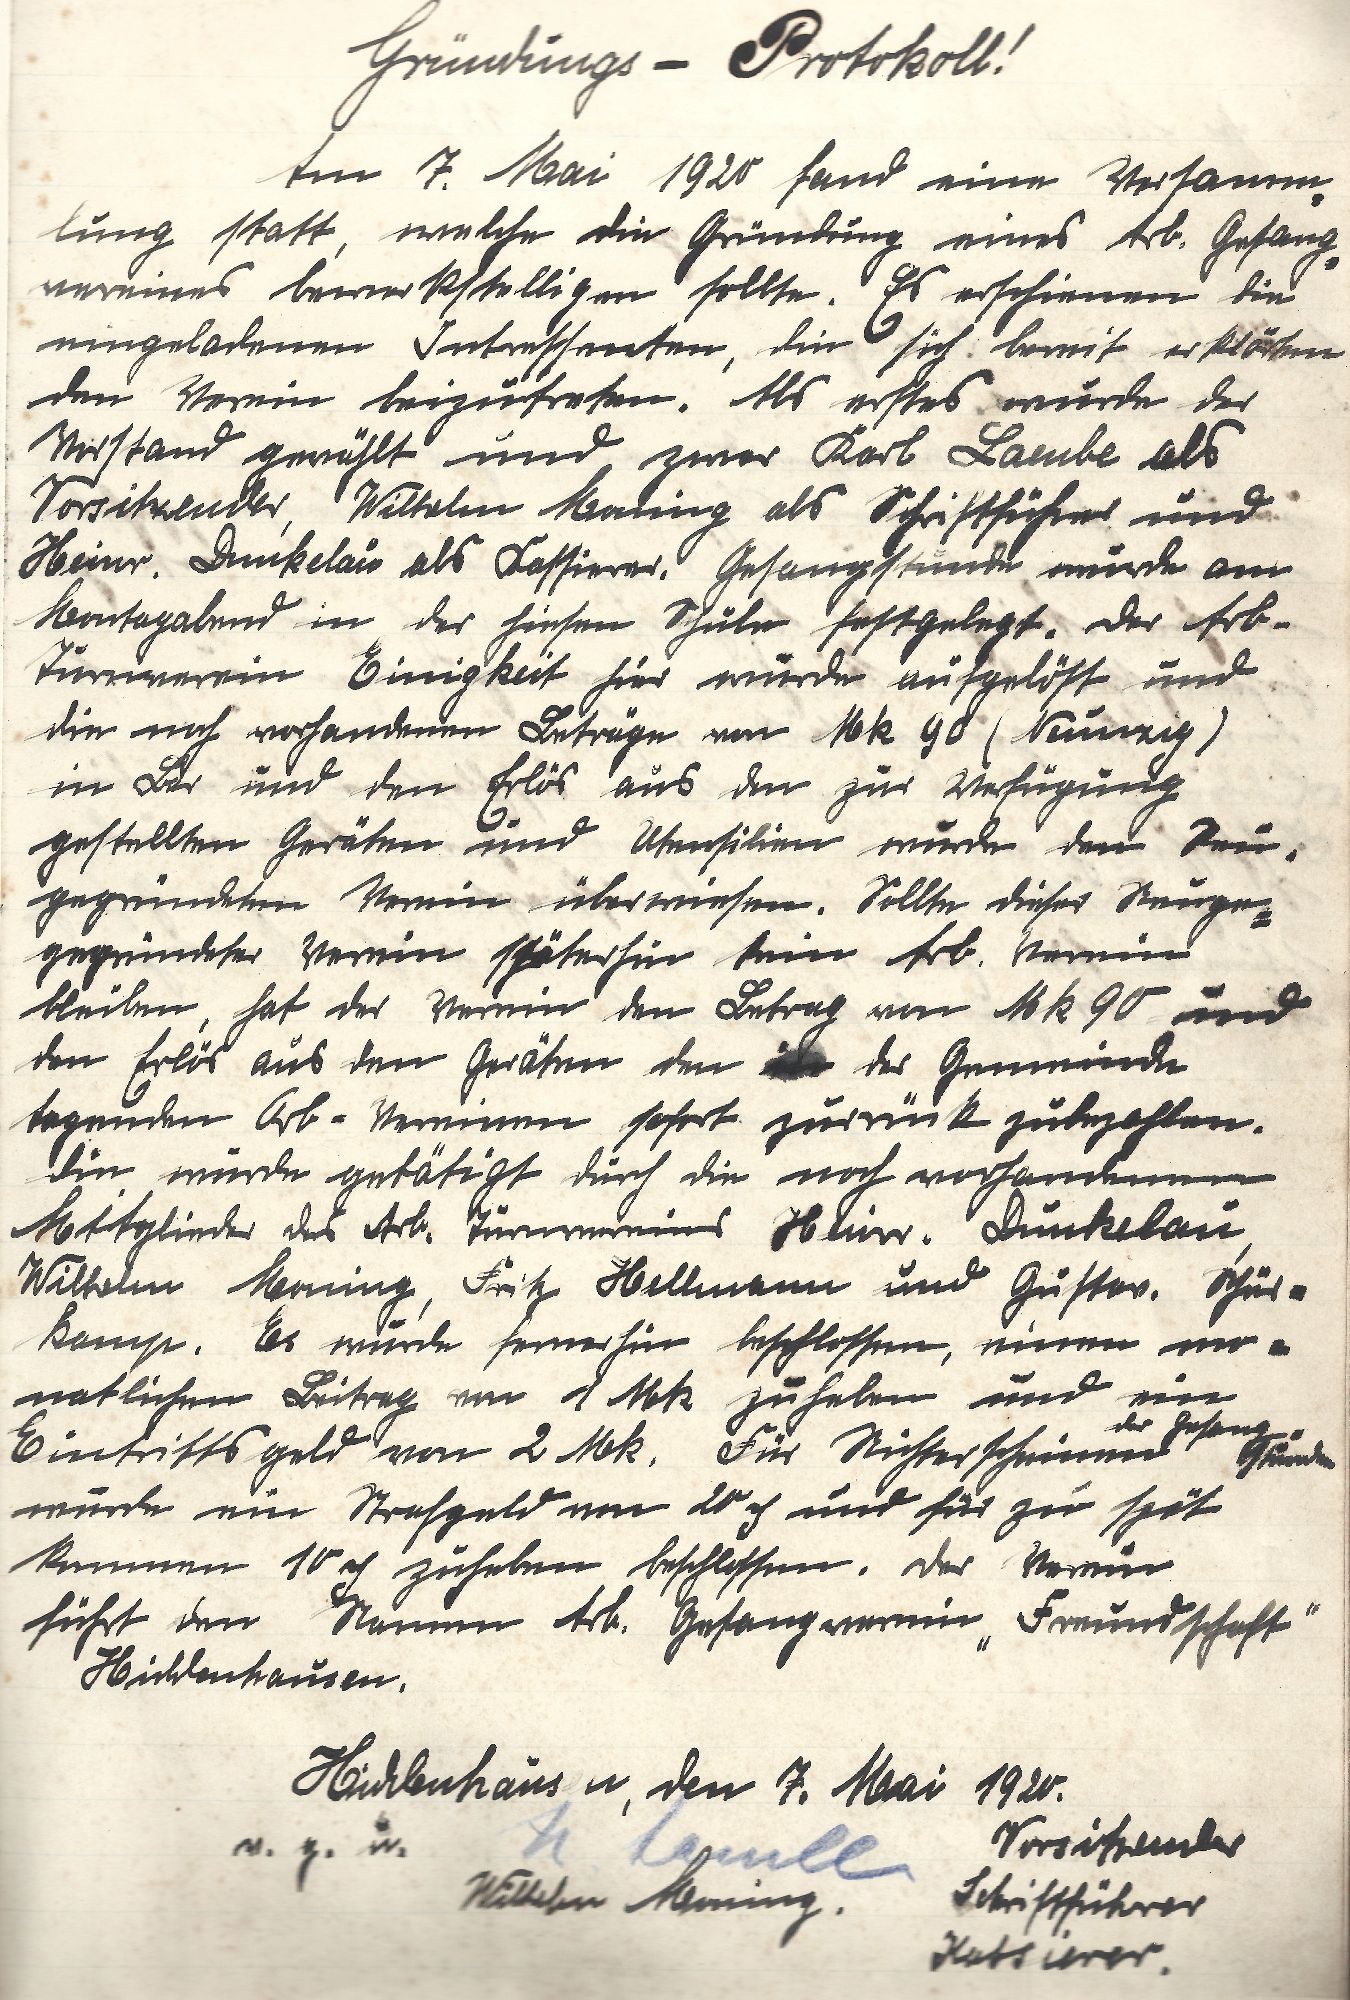 Gründungs - Protokoll!
Am 7. Mai 1920 fand eine Versamm-
lung statt, welche die Gründung eines Arb. Gesang-
vereines bewerkstelligen sollte. Es erschienen die
eingeladenen Intressenten, die sich bereit erklärten
den Verein beizutreten. Als erstes wurde der
Vorstand gewählt und zwar Karl Laembe als
Vorsitzender, Wilhelm Moning als Schriftführer und
Heinr. Dunkelau als Kassierer. Gesangstunde wurde am
Montagabend in der hiesen Schule festgelegt. Der Arb-
Turnverein Einigkeit hier wurde aufgelöst und
die noch vorhandenen Beträge von Mk 90 (Neunzig)
in Bar und den Erlös aus den zur Verfügung
gestellten Geräten und Utensilien wurde den Neu-
gegründeten Verein überwiesen. Sollte dieser Neuge-
gegründeter Verein späterhin kein Arb. Verein
bleiben, hat der Verein den Betrag von Mk 90 und
den Erlös aus den Geräten den der Gemeinde
tagenden Arb-Vereinen sofort zurrück zubezahlen.
Die wurde getätigt durch die noch vorhandenen
Mitglieder des Arb. Turnvereins Heinr. Dunkelau,
Wilhelm Moning, Fritz Hellmann und Gustav. Schür-
kamp. Es wurde fernerhin beschlossen, einen mo-
natlichen Beitrag von 1 Mk zuheben und ein
Eintrittsgeld von 2 Mk. Für Nichterscheinen der Gesang Stunden
wurde ein Strafgeld von 20 ₰ und für zu spät
kommen 10 ₰ zuheben beschlossen. Der Verein
führt den Namen Arb. Gesangverein „Freundschaft"
Hiddenhausen.
Hiddenhausen, den 7. Mai 1920.
v. g. u. Vorsitzender
Wilhelm Moning. Schriftführer
Kassierer.